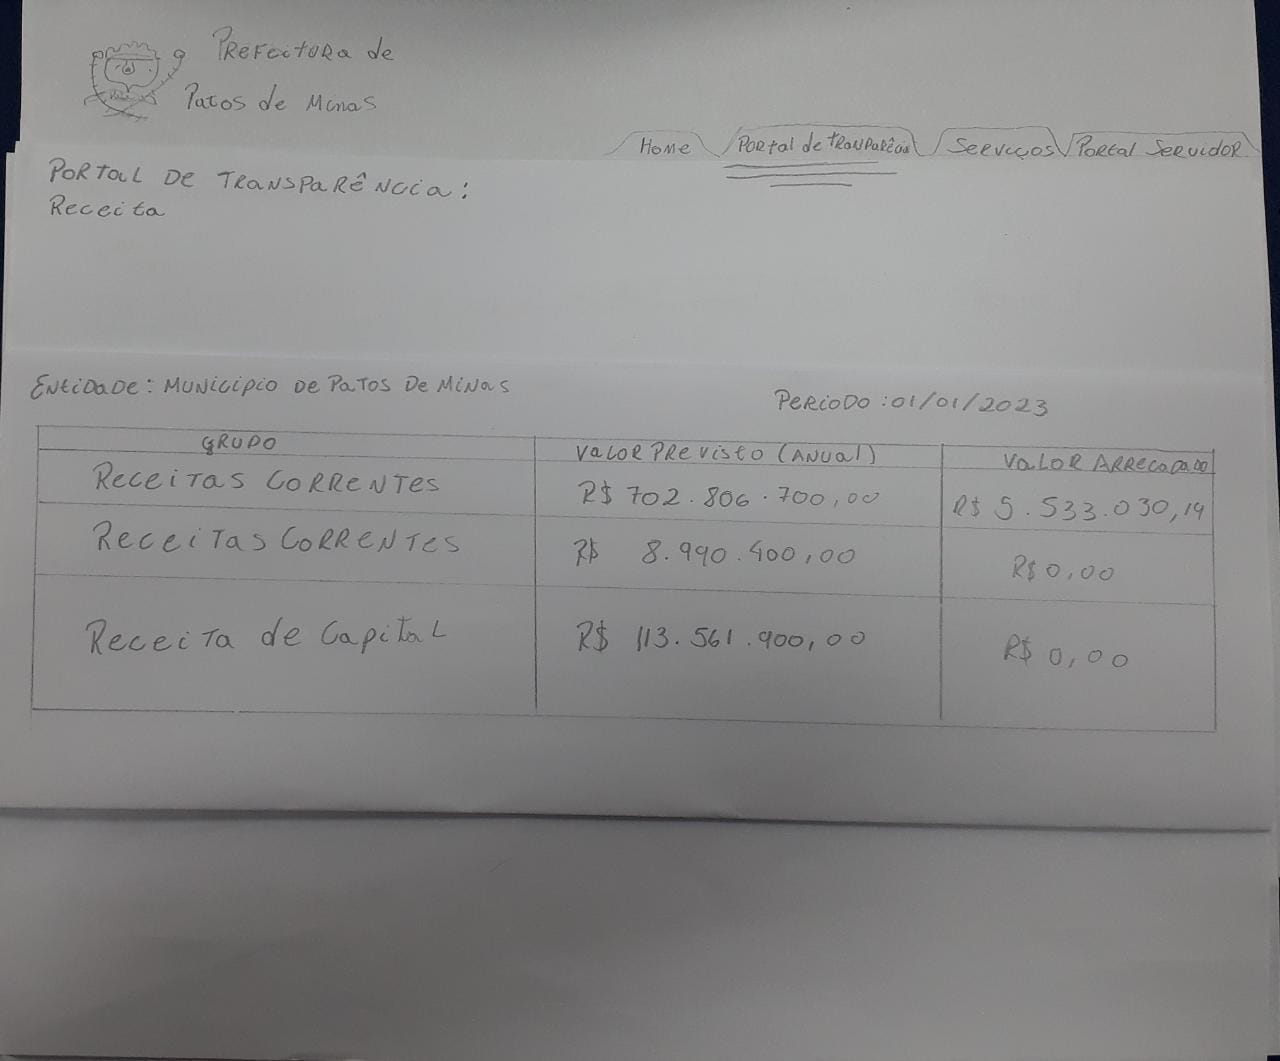 Prefeitura de
Patos de Minas
Home
Portal de Tranparência
Serviços
Portal Servidor
Portal de Transparência:
Receita
Entidade: Municipio de Patos de Minas
Periodo: 01/01/2023
Grupo
Valor Previsto (Anual)
Valor Arrecadado
Receitas Correntes
R$ 702.806.700,00
R$ 5.533.030,19
Receitas Correntes
R$ 8.990.400,00
R$ 0,00
Receita de Capital
R$ 113.561.900,00
R$ 0,00